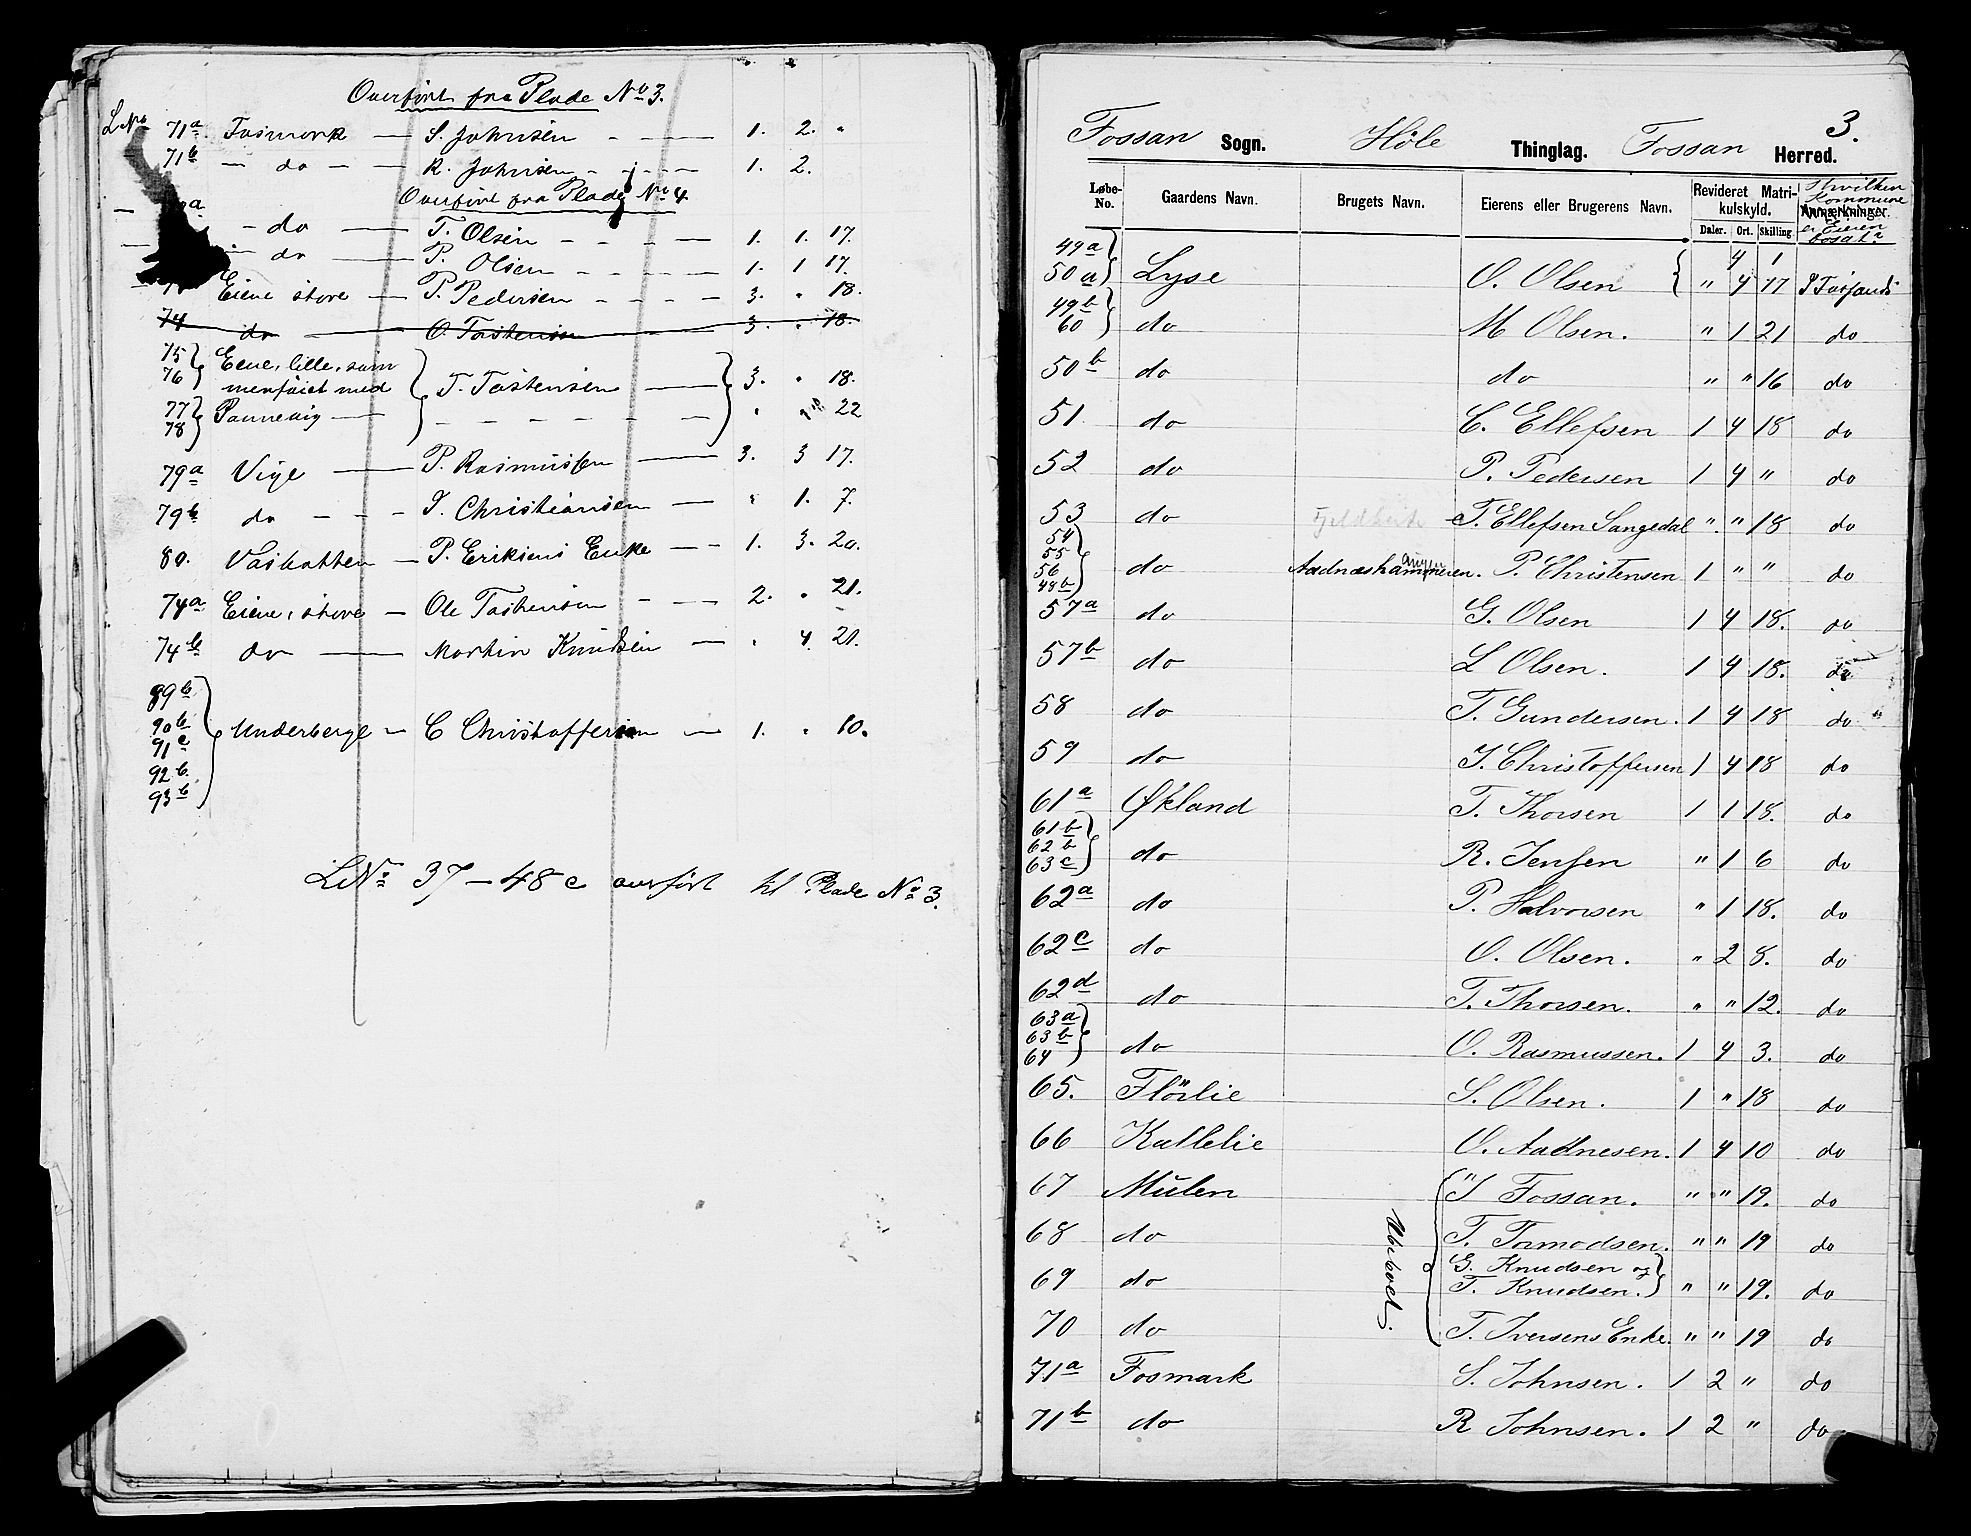 Overført fra Plade No 3.
L No 71a Fosmark — S. Johnsen — 1. 2. "
71b — do — R. Johnsen — 1. 2.
Overført fra Plade No 4
a — do — T. Olsen — 1. 1. 17.
— do — P. Olsen — 1. 1 17.
Eiene store — P. Pedersen — 3. " 18.
74 do — O. Tostensen — 3. " 18.
75 76 Eiene, lille, sam
menføiet med T. Tostensen — 3. " 18.
77 78 Pannevig — " 22
79a Vige — P. Rasmussen — 3. 3 17.
79b do — Christiansen — " 1. 7.
80. Vasbotten — P. Eriksens Enke — 1. 3. 20.
74a Eiene, store — Ole Tostensen — 2. " 21.
74b do — Martin Knudsen — " 4. 21.
89b
90b
91c Underberge — C Christoffersen — 1. " 10.
92b.
93b
LNo 37 — 48c overført til Plade No 3.
3.
Fossan Sogn. Høle Thinglag. Fossan Herred.
Løbe-No. Gaardens Navn. Brugets Navn. Eierens eller Brugerens Navn. Revideret Matrikulskyld. Anmærkninger.
Daler. Ort. Skilling
Hvilken Kommune er Eieren bosat?
49a 4 1
50a Lyse O. Olsen " 4 17 Fosfands
49b
60 do M Olsen. " 1 21 do
50b do do " " 16 do
51 do C. Ellefsen 1 4 18 do
52 do P. Pedersen 1 4 " do
53 do T. Ellefsen Sangedal " " 18 do
54
55
56
48b do Aadneshammeren. P. Christensen 1 " " do
57a do G. Olsen 1 4 18. do
57b do L Olsen. 1 4 18. do
58 do T. Gundersen. 1 4 18 do
59 do Christoffersen 1 4 18 do
61a Økland T. Thorsen 1 1 18. do
61b
62b
63c do R. Jensen " 1 6 do
62a do P. Halvorsen " 1 18. do
62c do O. Olsen. " 2 8. do
62d do T. Thorsen. " " 12. do
63a
63b
64 do O. Rasmussen. 1 4 3. do
65. Flörlie S. Olsen. 1 " 18 do
66 Kallelie O. Aadnesen. 1 4 10 do
67 Mulen Fossan. " " 19. do
Ubeboet.
68 do T. Tormodsen. " " 19 do
G. Knudsen og
69 do T. Knudsen. " " 19. do
70 do T. Iversens Enke. " " 19 do
71a Fosmark S. Johnsen. 1 2 " do
71b do R Johnsen. 1 2 " do